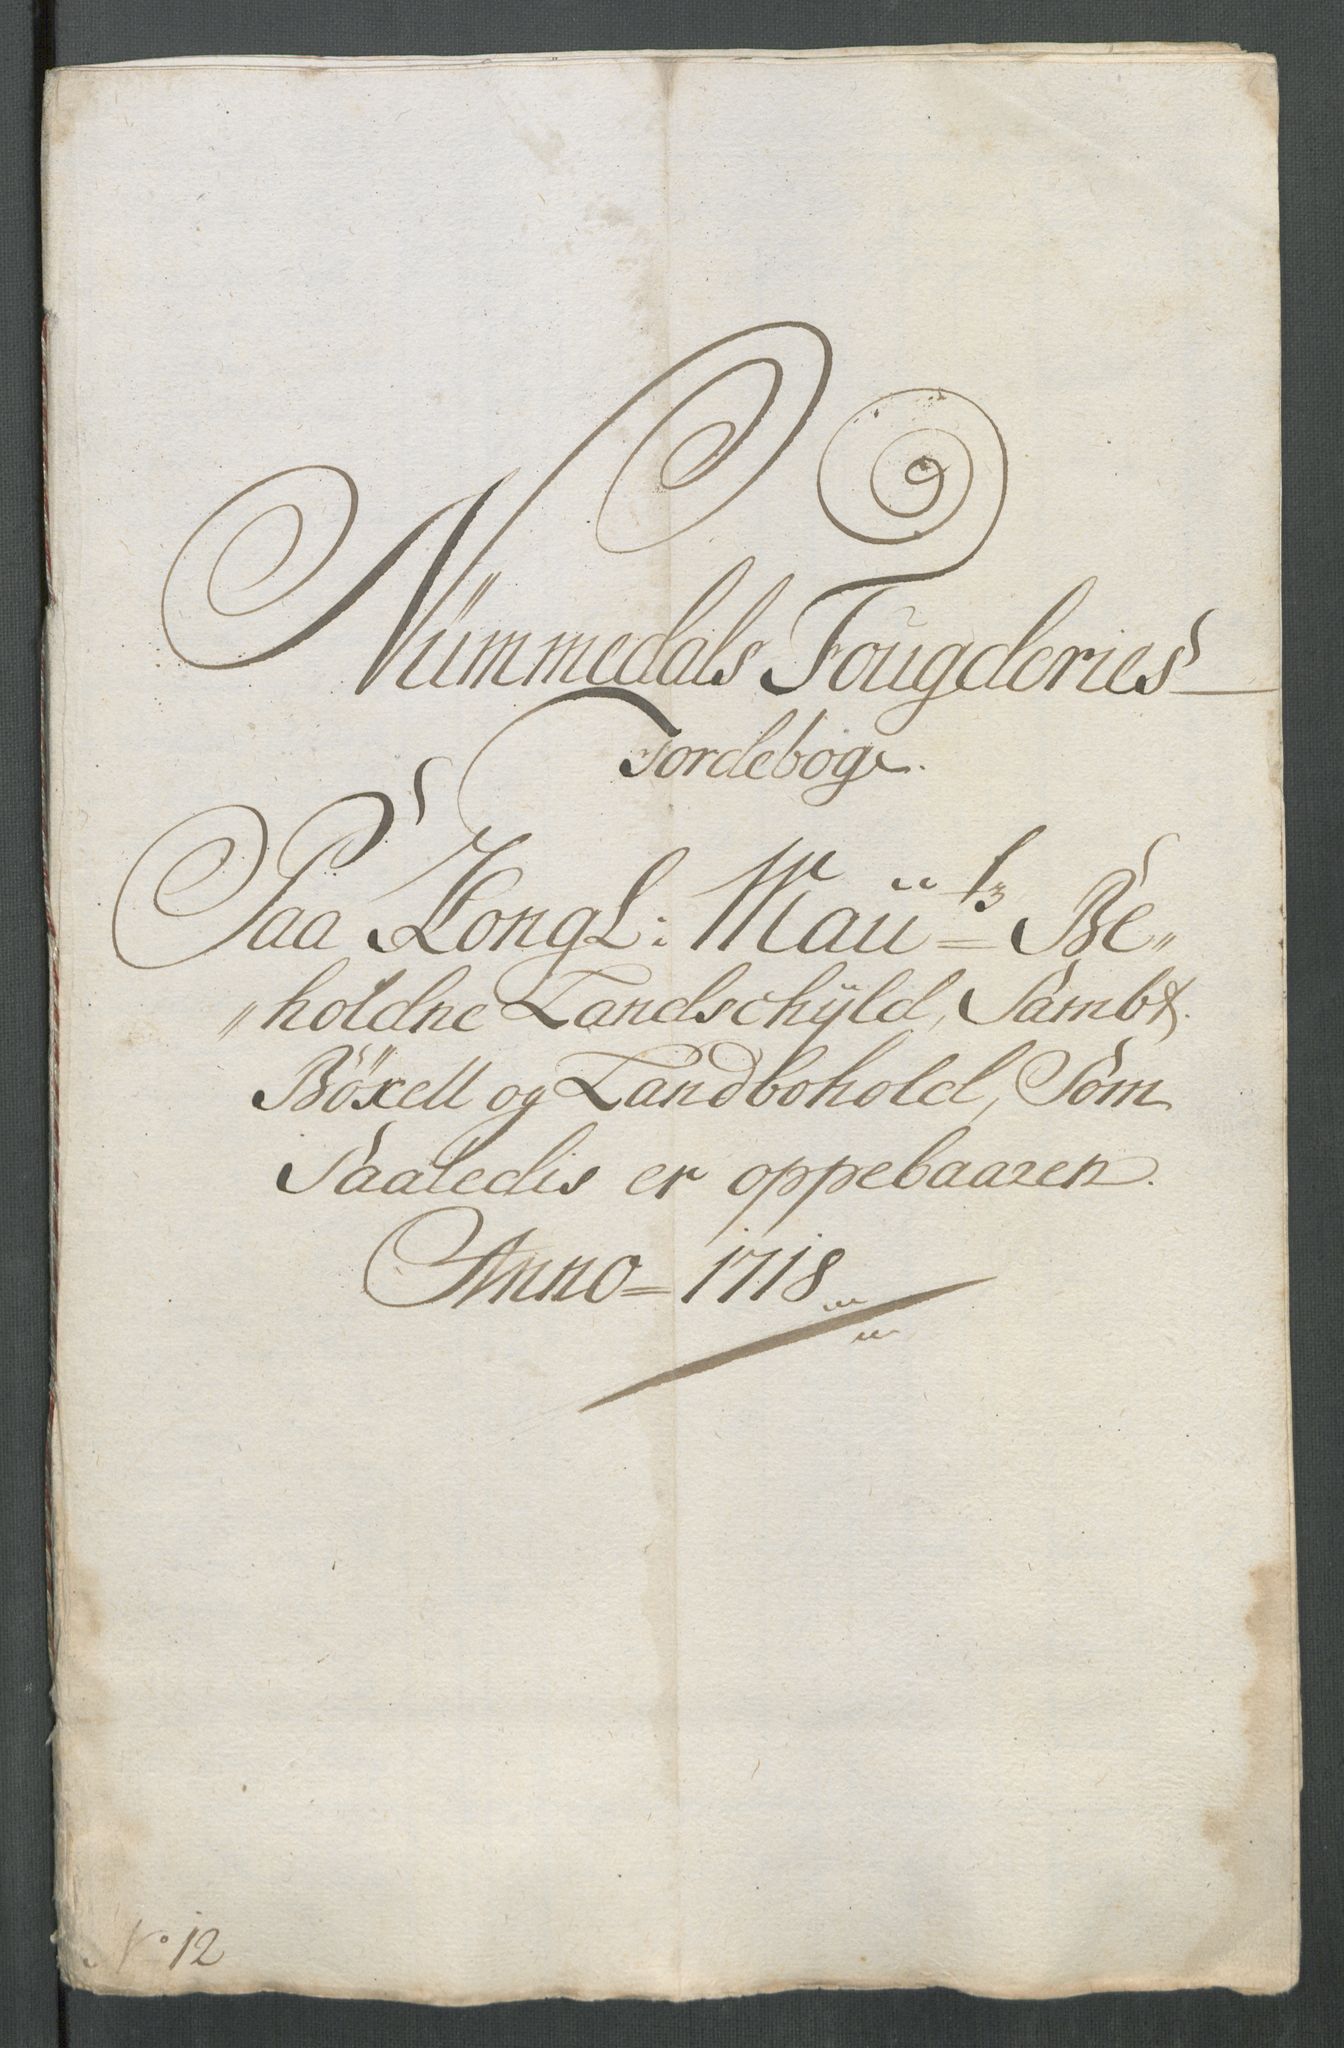 Nümmedals Fougderies
Jordebog.
Paa Kongl: Maÿ.ts Be„
„holdne Landschÿld, Sambt.
Böxell og Landbohold, Som
Saaledis er oppebaaren.
Anno = 1718
No 12